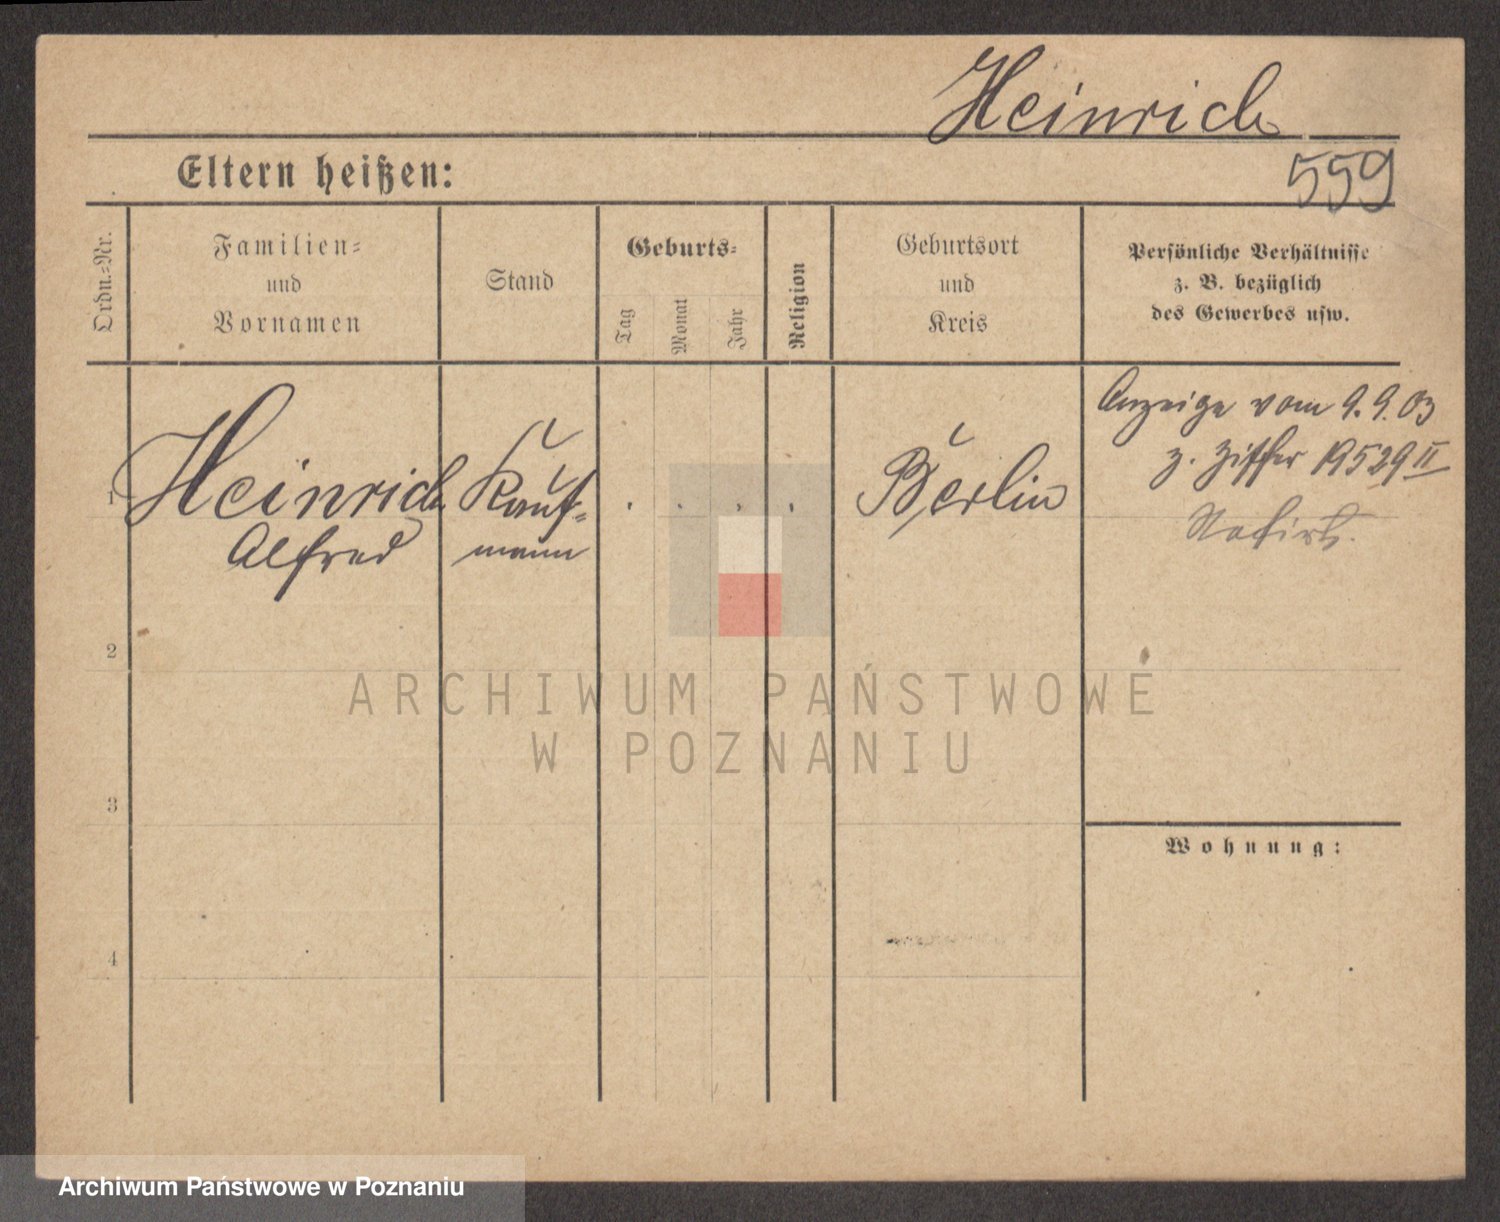 Heinrich
559
Eltern heißen:
Ordn.=Nr.
Familien=
und
Vornamen
Stand
Geburts=
Tag
Monat
Jahr
Religion
Geburtsort
und
Kreis
Persönliche Verhältnisse
z. B. bezüglich
des Gewerbes usw.
1
Heinrich
Alfred
Kauf=
mann
Berlin
Anzeige vom 9.9.03
z. Ziffer 19529 II
2
3
4
Wohnung:
ARCHIWUM PAŃSTWOWE
W POZNANIU
Archiwum Państwowe w Poznaniu